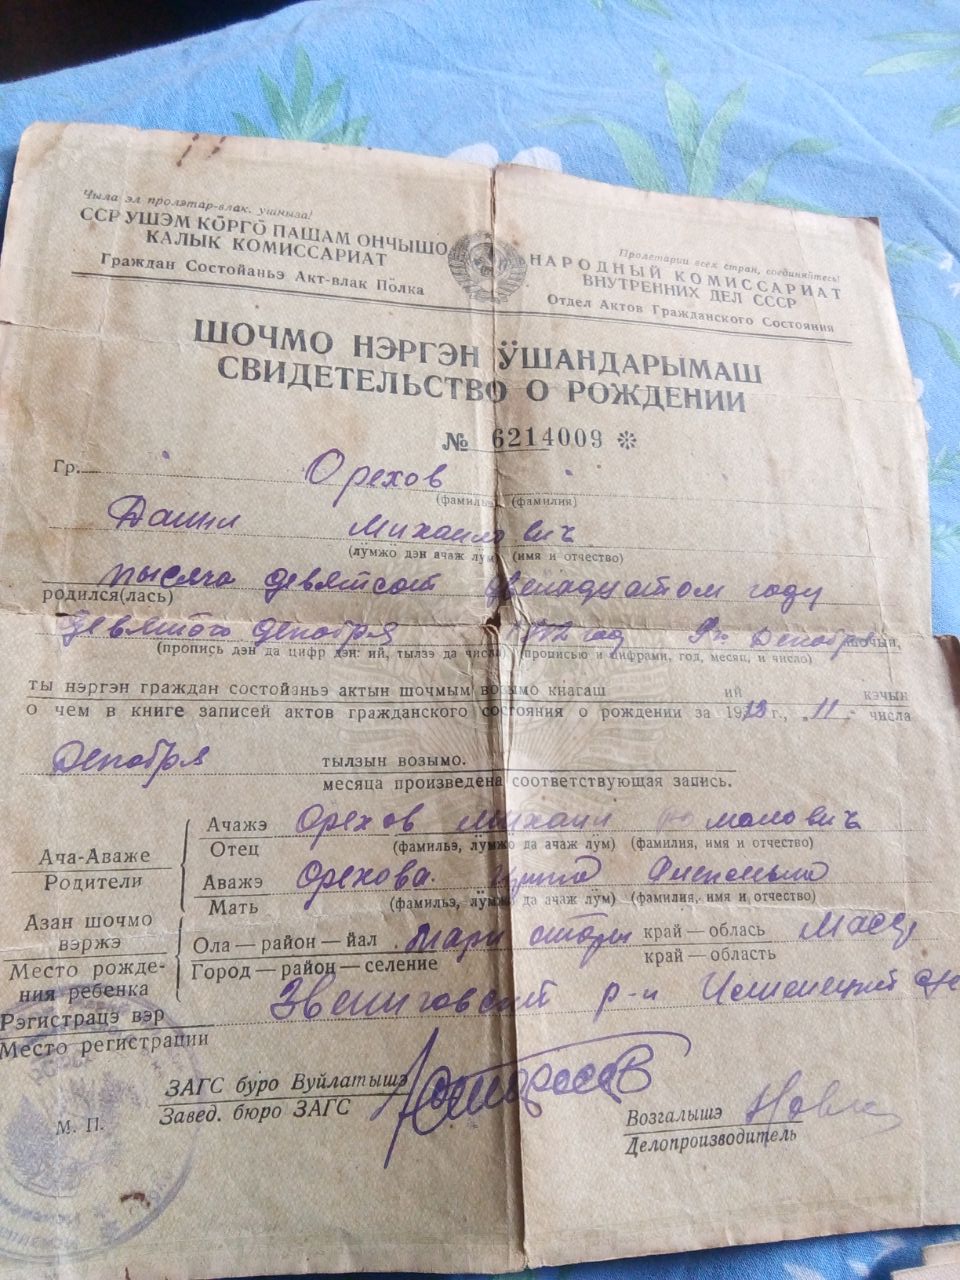 Чыла эл пролэтар-влак, ушныза!
ССР УШЭМ КӦРГӦ ПАШАМ ОНЧЫШО
КАЛЫК КОМИССАРИАТ
Граждан Состойаньэ Акт-влак Пӧлка
Пролетарии всех стран, соединяйтесь!
НАРОДНЫЙ КОМИССАРИАТ
ВНУТРЕННИХ ДЕЛ СССР
Отдел Актов Гражданского Состояния
ШОЧМО НЭРГЭН ӰШАНДАРЫМАШ
СВИДЕТЕЛЬСТВО О РОЖДЕНИИ
№ 6214009
Гр. Орехов
(фамильэ) (фамилия)
Данил Михаилович
(лӱмжо дэн ачаж лӱм) (имя и отчество)
тысяча девятсот двенадцатом году
родился(лась)
девятого декабря 1912 год 9го Декабря шочын,
(пропись дэн да цифр дэн: ий, тылзэ да числа) (прописью и цифрами, год, месяц, и число)
ты нэргэн граждан состойаньэ актын шочмым возымо кнагаш ий кэчын
о чем в книге записей актов гражданского состояния о рождении за 19 г., 11 числа
Декабря тылзын возымо.
месяца произведена соответствующая запись.
Ача-Аваже
Родители
Ачажэ Орехов Михаил
Отец (фамильэ, лӱмжо да ачаж лӱм) (фамилия, имя и отчество)
Аважэ Орехова
Мать (фамильэ, лӱмжо да ачаж лӱм) (фамилия, имя и отчество)
Азан шочмо вэржэ
Место рождения ребенка
Ола — район — йал край — облась
Город — район — селение край — область
Рэгистрацэ вэр Звениговский р-н
Место регистрации
ЗАГС буро Вуйлатышэ
Завед. бюро ЗАГС
М. П.
Возгалышэ
Делопроизводитель